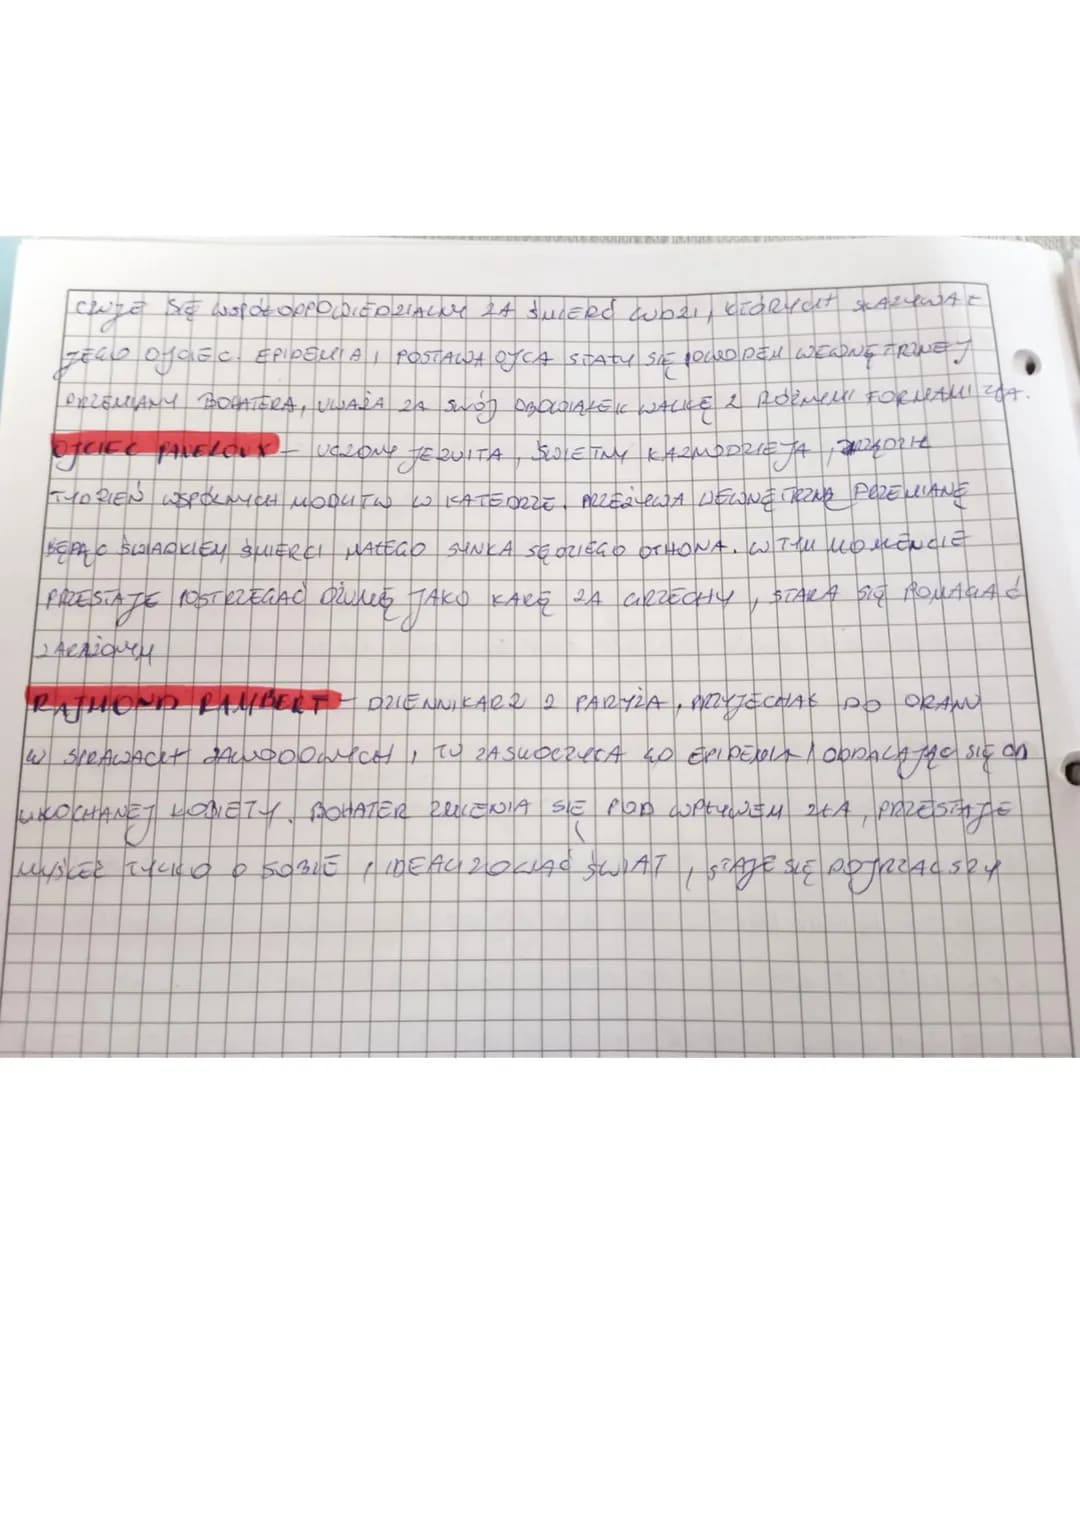 CZUJE SIĘ WSPÓŁODPOWIEDZIALNY ZA ŚMIERĆ LUDZI, KTÓRYCH SKAZYWAŁ
JEGO OJCIEC. EPIDEMIA I POSTAWA OJCA STAŁY SIĘ POWODEM WEWNĘTRZNEJ
PRZEMIANY BOHATERA, UWAŻA ZA SWÓJ OBOWIĄZEK WALKĘ Z RÓŻNYMI FORMAMI ZŁA.
OJCIEC PANELOUX - UCZONY JEZUITA, ŚWIETNY KAZNODZIEJA,
TYDZIEŃ WSPÓLNYCH MODLITW W KATEDRZE. PRZEŻYWA WEWNĘTRZNĄ PRZEMIANĘ
BĘDĄC ŚWIADKIEM ŚMIERCI MAŁEGO SYNKA SĘDZIEGO OTHONA. W TYM MOMENCIE
PRZESTAJE POSTRZEGAĆ DŻUMĘ JAKO KARĘ ZA GRZECHY, STARA SIĘ POMAGAĆ
ZARAŻONYM
RAJMOND RAMBERT - DZIENNIKARZ Z PARYŻA, PRZYJECHAŁ DO ORANU
W SPRAWACH ZAWODOWYCH, TU ZASKOCZYŁA GO EPIDEMIA ODDALAJĄC SIĘ OD
UKOCHANEJ KOBIETY. BOHATER ZMIENIA SIĘ POD WPŁYWEM ZŁA, PRZESTAJE
MYŚLEĆ TYLKO O SOBIE, IDEALIZOWAĆ ŚWIAT, STAJE SIĘ DOJRZALSZY